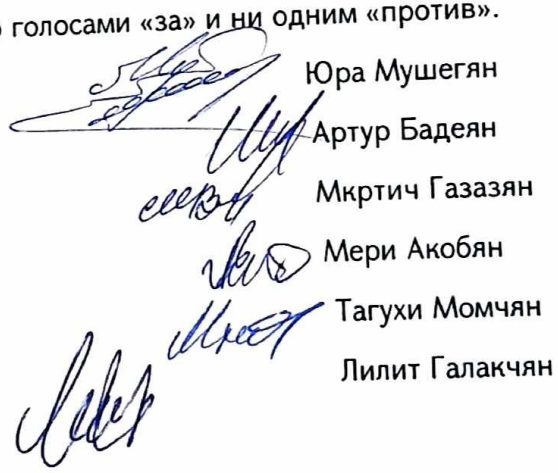 голосами «за» и ни одним «против».
Юра Мушегян
Артур Бадеян
Мкртич Газазян
Мери Акобян
Тагухи Момчян
Лилит Галакчян